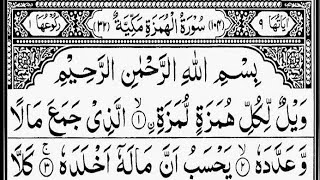 اٰيَاتُهَا ٩ (١٠٤) سُوْرَةُ الْهُمَزَةِ مَكِّيَّةٌ (٣٢) رُكُوْعُهَا ١
بِسْمِ اللّٰهِ الرَّحْمٰنِ الرَّحِيْمِ
وَيْلٌ لِّكُلِّ هُمَزَةٍ لُّمَزَةِ ۙ﴿١﴾ الَّذِيْ جَمَعَ مَالًا
وَّعَدَّدَهٗ ۙ﴿٢﴾ يَحْسَبُ اَنَّ مَالَهٗٓ اَخْلَدَهٗ ۚ﴿٣﴾ كَلَّا